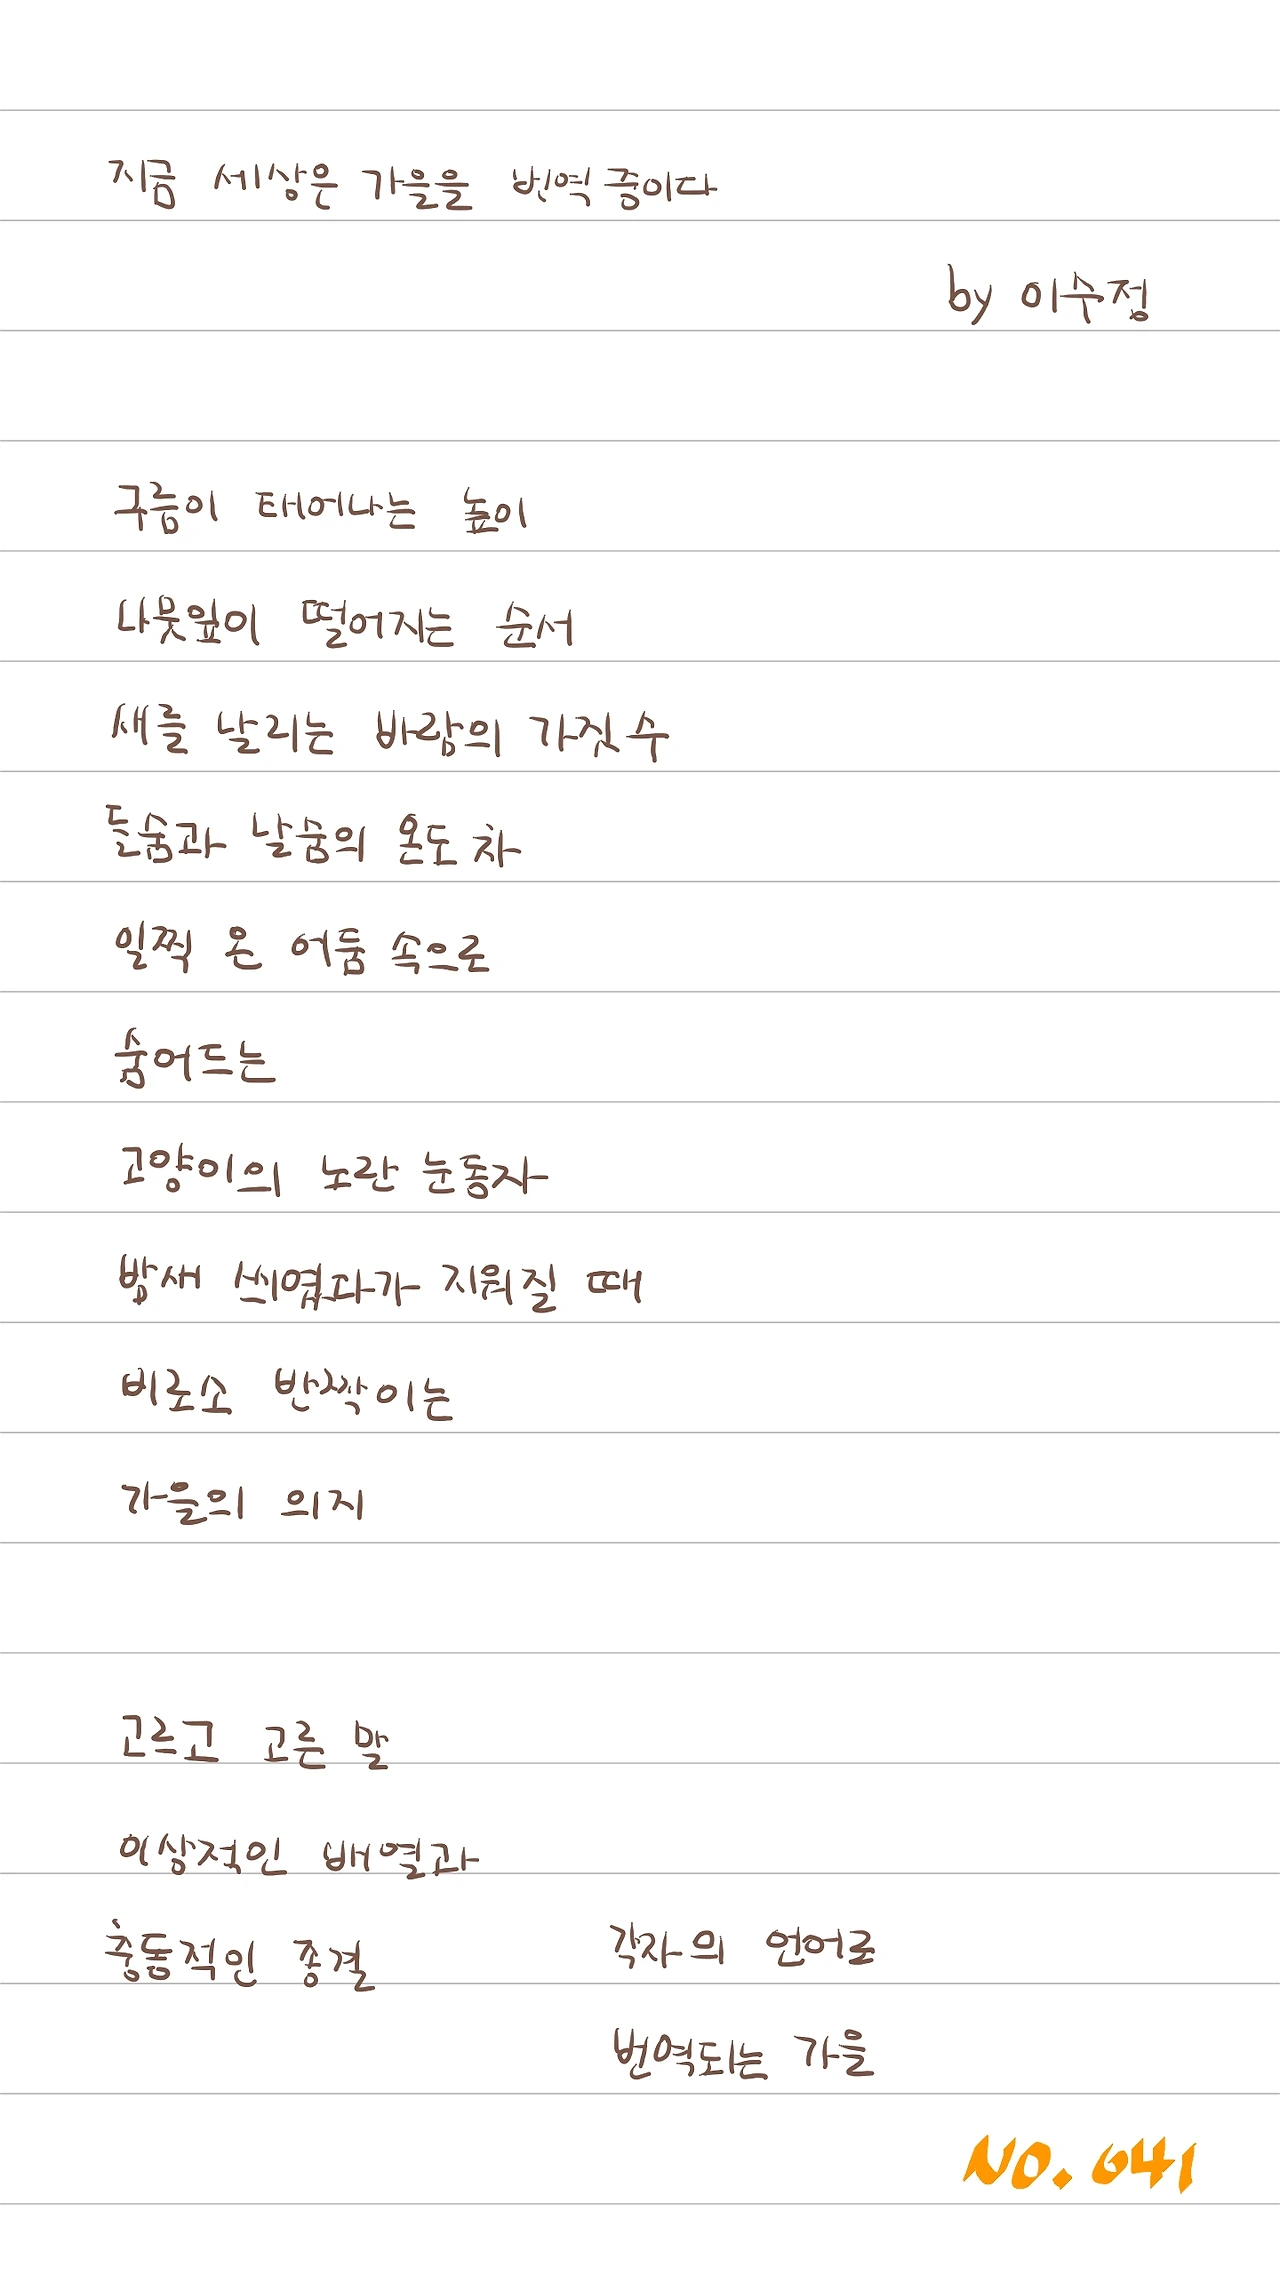 지금 세상은 가을을 번역 중이다
by 이수정
구름이 태어나는 높이
나뭇잎이 떨어지는 순서
새를 날리는 바람의 가짓수
들숨과 날숨의 온도 차
일찍 온 어둠 속으로
숨어드는
고양이의 노란 눈동자
밤새 씌였다가 지워질 때
비로소 반짝이는
가을의 의지
고르고 고른 말
이상적인 배열과
충동적인 종결
각자의 언어로
번역되는 가을
NO. 041